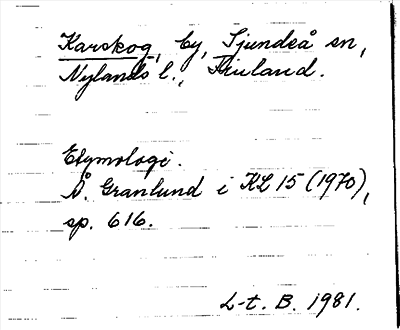 Karskog, by, Sjundeå sn,
Nylands l., Finland.
Etymologi.
Å. Granlund i KL 15 (1970),
sp. 616.
L-t. B. 1981.